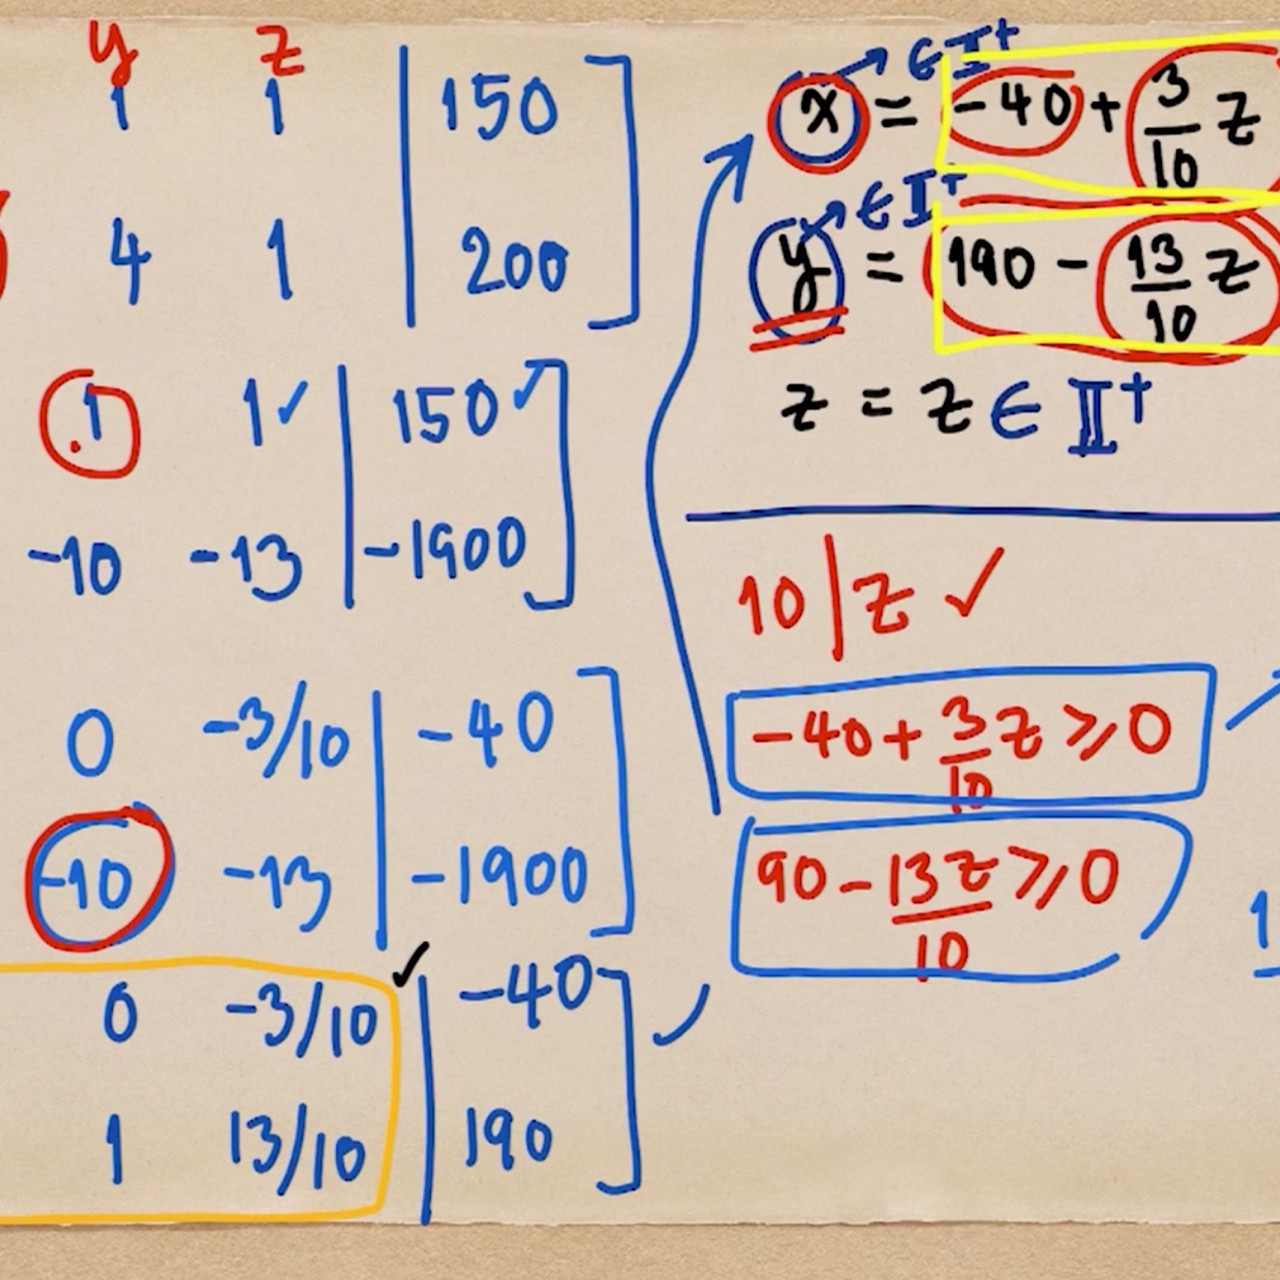 y z
1 1 | 150
4 1 | 200
1 1✓ | 150✓
-10 -13 | -1900
0 -3/10 | -40
-10 -13 | -1900
0 -3/10 ✓ | -40
1 13/10 | 190
x → ∈ I⁺
x = -40 + 3/10 z
y → ∈ I⁺
y = 190 - 13/10 z
z = z ∈ I⁺
10 | z ✓
-40 + 3/10 z ≥ 0
90 - 13z/10 ≥ 0
1